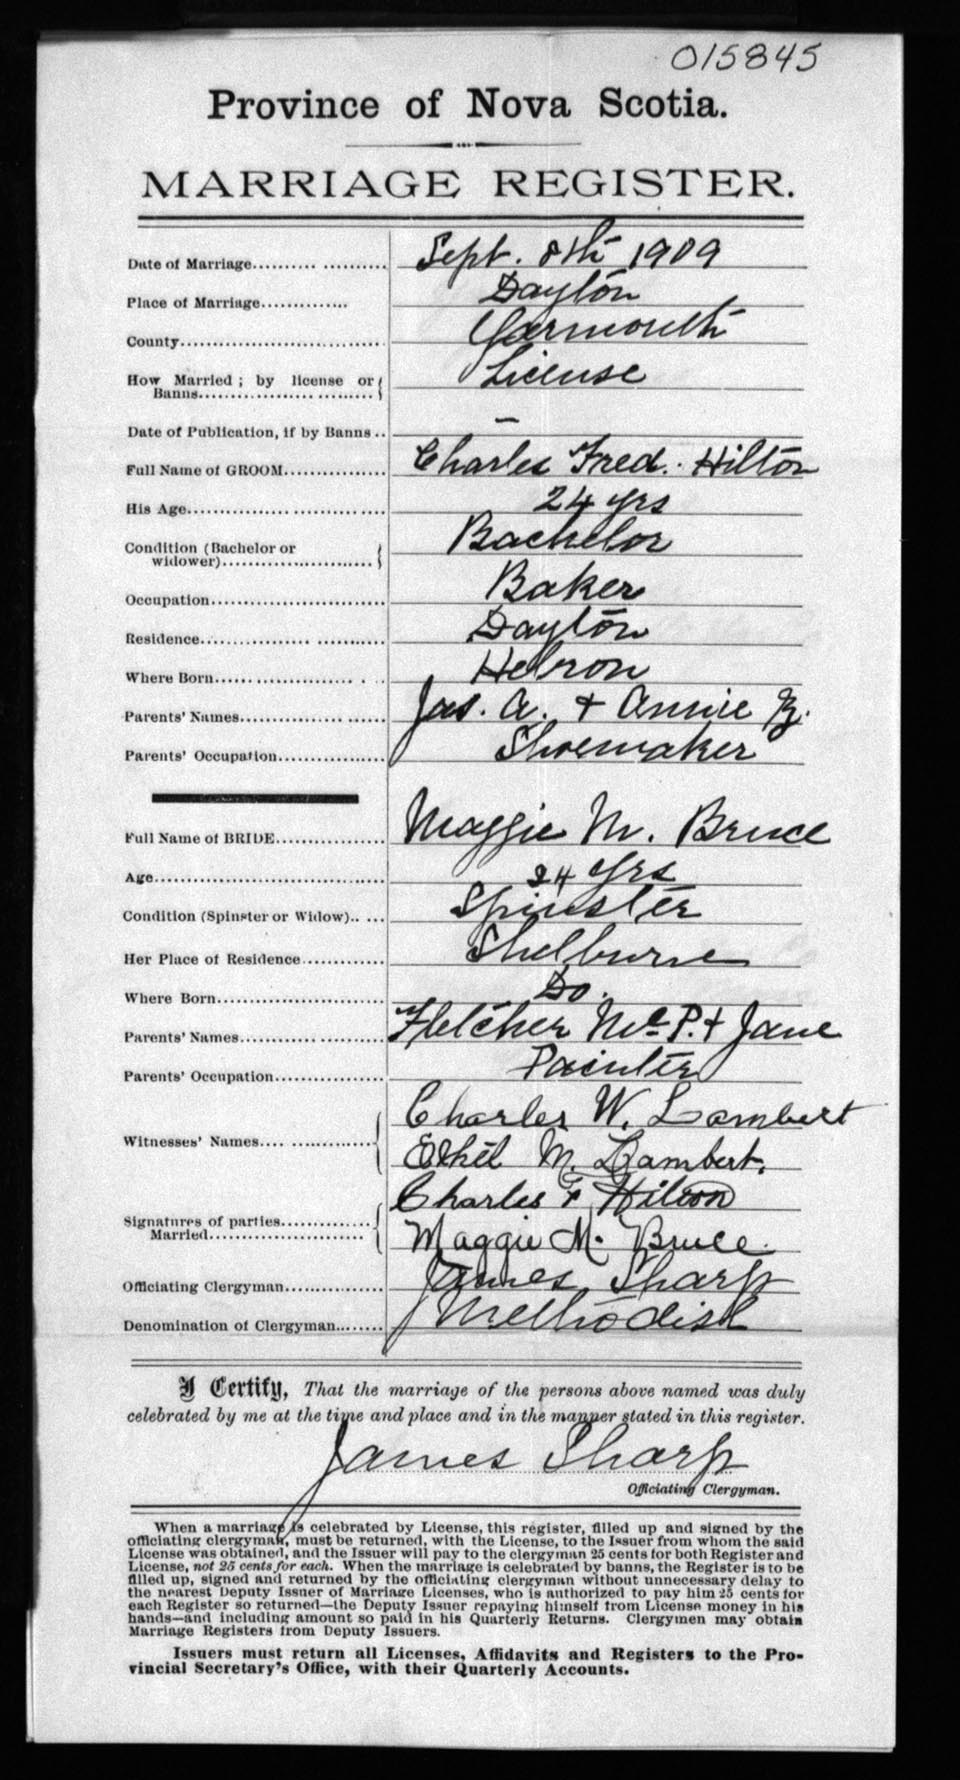 015845
Province of Nova Scotia.
MARRIAGE REGISTER.
Date of Marriage.......... Sept. 8th 1909
Place of Marriage.......... Dayton
County.......... Yarmouth
How Married ; by license or
Banns.......... License
Date of Publication, if by Banns .. –
Full Name of GROOM.......... Charles Fred. Hilton
His Age.......... 24 yrs
Condition (Bachelor or
widower).......... Bachelor
Occupation.......... Baker
Residence.......... Dayton
Where Born.......... Hebron
Parents' Names.......... Jas. A. + Annie
Parents' Occupation.......... Shoemaker
Full Name of BRIDE.......... Maggie M. Bruce
Age.......... 24 yrs
Condition (Spinster or Widow).......... Spinster
Her Place of Residence.......... Shelburne
Where Born.......... Do.
Parents' Names.......... Fletcher McP. + Jane
Parents' Occupation.......... Painter
Charles W. Lambert
Witnesses' Names..........
Ethel M. Lambert.
Charles F Hilton
Signatures of parties
Married..........
Maggie M. Bruce.
Officiating Clergyman.......... James Sharp
Denomination of Clergyman.......... Methodist
I Certify, That the marriage of the persons above named was duly
celebrated by me at the time and place and in the manner stated in this register.
James Sharp
Officiating Clergyman.
When a marriage is celebrated by License, this register, filled up and signed by the
officiating clergyman, must be returned, with the License, to the Issuer from whom the said
License was obtained, and the Issuer will pay to the clergyman 25 cents for both Register and
License, not 25 cents for each. When the marriage is celebrated by banns, the Register is to be
filled up, signed and returned by the officiating clergyman without unnecessary delay to
the nearest Deputy Issuer of Marriage Licenses, who is authorized to pay him 25 cents for
each Register so returned—the Deputy Issuer repaying himself from License money in his
hands—and including amount so paid in his Quarterly Returns. Clergymen may obtain
Marriage Registers from Deputy Issuers.
Issuers must return all Licenses, Affidavits and Registers to the Pro-
vincial Secretary's Office, with their Quarterly Accounts.